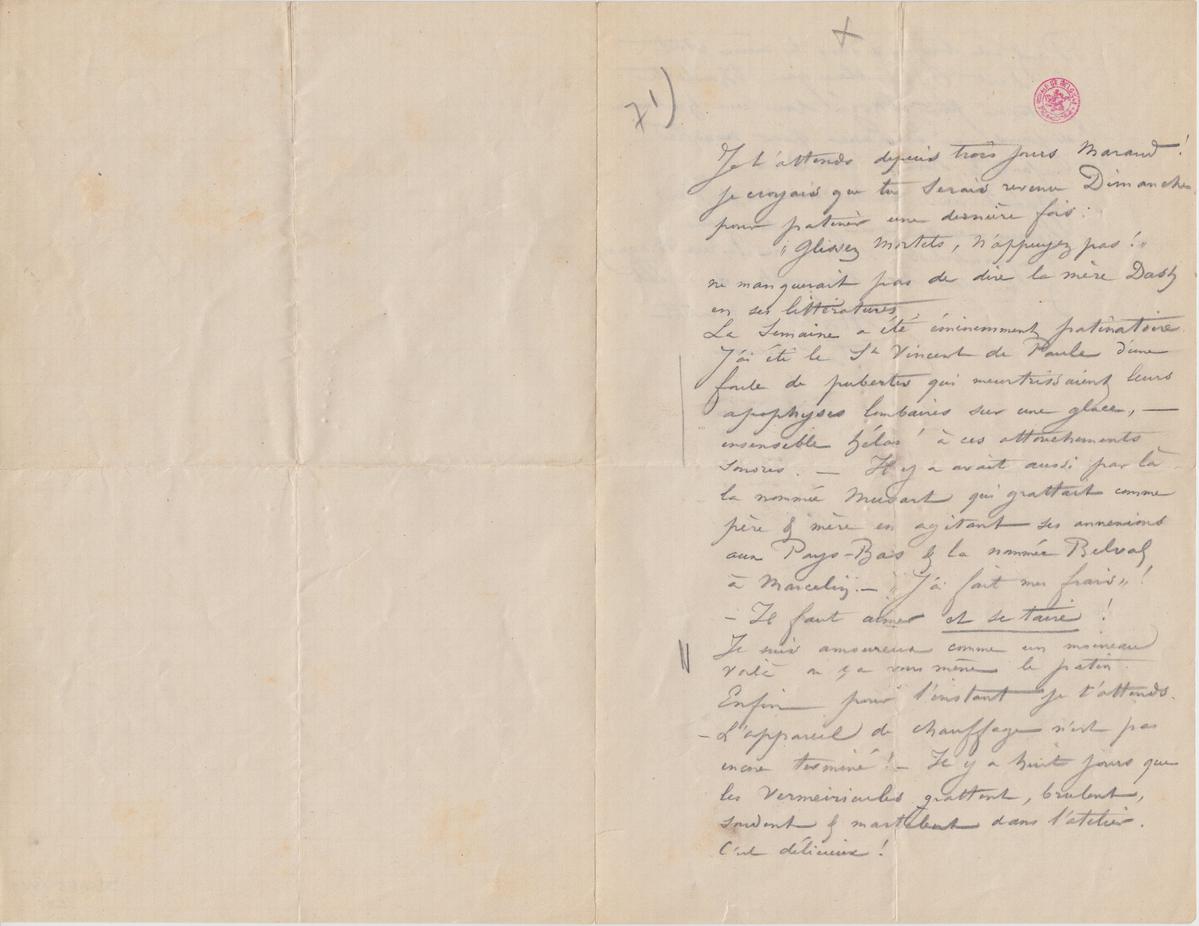 71)
Je t'attends depuis trois jours Maraud !
je croyais que tu serais revenu Dimanche
pour patiner une dernière fois :
"Glissez Mortels, n'appuyez pas !"
ne manquerait pas de dire la mère Dasty
en ses littératures
La Semaine a été éminemment patinatoire.
J'ai été le St Vincent de Paule d'une
foule de pubertés qui meurtrissaient leurs
apophyses lombaires sur une glace, —
insensible hélas ! à ces attouchements
sonores. — Il y avait aussi par là
la nommée qui grattait comme
père & mère en agitant ses annexions
aux Pays-Bas & la nommée
à — "J'ai fait mes frais" !
— Il faut aimer et se taire !
Je suis amoureux comme un moineau
voilà où ça vous mène le patin.
Enfin pour l'instant je t'attends.
— L'appareil de chauffage n'est pas
encore terminé ! — Il y a huit jours que
les grattent, brulent,
soudent & martelent dans l'atelier.
C'est délicieux !